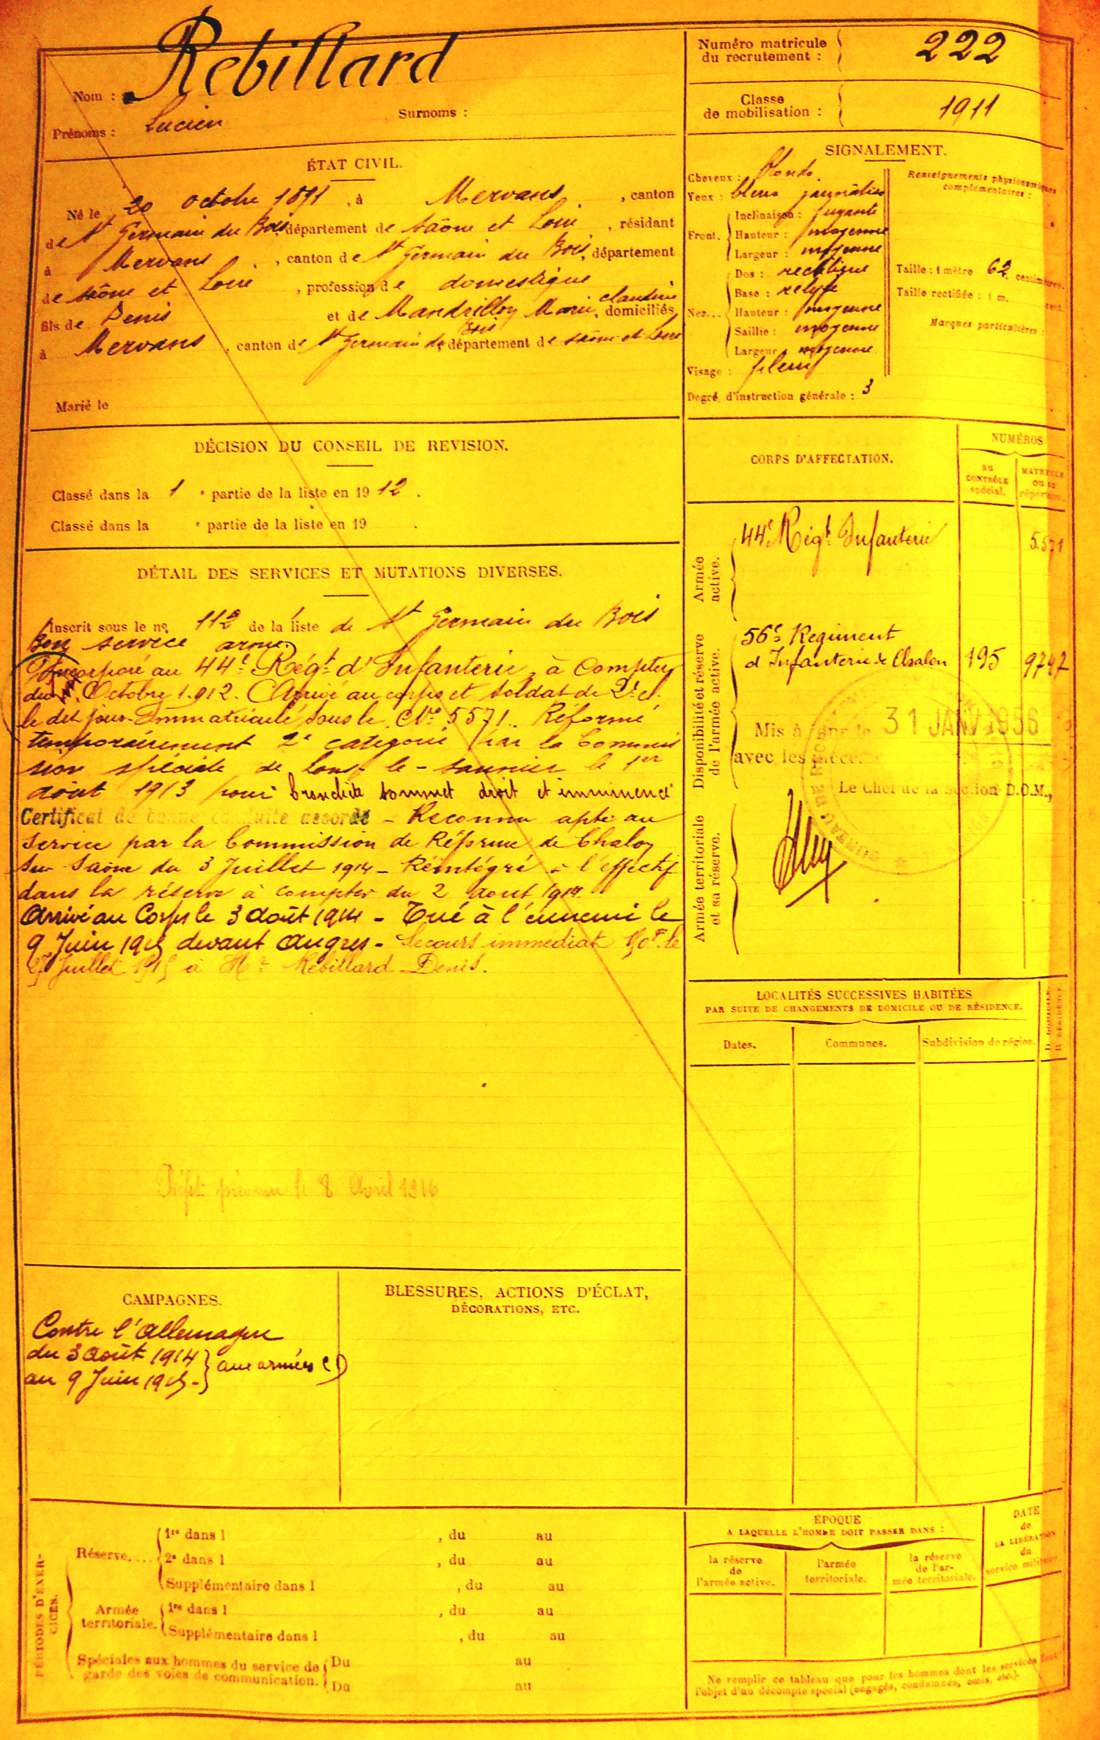 Nom : Rebillard
Prénoms : Lucien
Surnoms :
Numéro matricule du recrutement : 222
Classe de mobilisation : 1911
ÉTAT CIVIL.
Né le 20 octobre 1891, à Mervans, canton
de St Germain du Bois, département de Saône et Loire, résidant
à Mervans, canton de St Germain du Bois, département
de Saône et Loire, profession de domestique
fils de Denis et de Mandrillon Marie Claudine, domiciliés
à Mervans, canton de St Germain du Bois, département de Saône et Loire
Marié le
SIGNALEMENT.
Cheveux : blonds
Yeux : bleus jaunâtres
Front. Inclinaison : fuyante
Hauteur : moyenne
Largeur : moyenne
Nez... Dos : rectiligne
Base : relevée
Hauteur : moyenne
Saillie : moyenne
Largeur : moyenne
Visage : plein
Degré d'instruction générale : 3
Renseignements physionomiques complémentaires :
Taille : 1 mètre 62 centimètres.
Taille rectifiée : 1 m. cent.
Marques particulières :
DÉCISION DU CONSEIL DE REVISION.
Classé dans la 1 e partie de la liste en 1912.
Classé dans la e partie de la liste en 19 .
DÉTAIL DES SERVICES ET MUTATIONS DIVERSES.
Inscrit sous le no 112 de la liste de St Germain du Bois
Bon service armé.
Incorporé au 44e Régt d'Infanterie, à compter
du Octobre 1912. Arrivé au corps et soldat de 2e cl.
le dit jour. Immatriculé sous le No 5571. Réformé
temporairement 2e catégorie par la Commis
sion spéciale de Lons-le-Saunier le 1er
août 1913 pour bronchite sommet droit et imminence
Certificat de bonne conduite accordé - Reconnu apte au
service par la Commission de Réforme de Chalon
sur Saône du 3 Juillet 1914 - Réintégré à l'effectif
dans la réserve à compter du 2 Aout 1914
Arrivé au Corps le 3 août 1914 - Tué à l'ennemi le
9 Juin 1915 devant Angres - Secours immédiat 150f le
27 Juillet 1915 à Mr Rebillard Denis.
8 Avril 1916
CORPS D'AFFECTATION.
NUMÉROS
AU CONTRÔLE spécial.
MATRICULE OU AU répertoire.
Armée active.
44e Régt Infanterie 5571
Disponibilité et réserve de l'armée active.
56e Régiment
d'Infanterie de Chalon 195 9747
Mis à jour le 31 JANV 1956
avec les pièces
Le Chef de la Section D.O.M.,
Armée territoriale et sa réserve.
LOCALITÉS SUCCESSIVES HABITÉES
PAR SUITE DE CHANGEMENTS DE DOMICILE OU DE RÉSIDENCE.
Dates.
Communes.
Subdivision de région.
D. DOMICILE.
R. RÉSIDENCE.
CAMPAGNES.
Contre l'Allemagne
du 3 Août 1914
au 9 Juin 1915 -
aux armées
BLESSURES, ACTIONS D'ÉCLAT,
DÉCORATIONS, ETC.
PÉRIODES D'EXERCICES.
Réserve....
1re dans l , du au
2e dans l , du au
Supplémentaire dans l , du au
Armée territoriale.
1re dans l , du au
Supplémentaire dans l , du au
Spéciales aux hommes du service de garde des voies de communication.
Du au
Du au
ÉPOQUE
A LAQUELLE L'HOMME DOIT PASSER DANS :
la réserve de l'armée active.
l'armée territoriale.
la réserve de l'armée territoriale.
DATE de LA LIBÉRATION du service militaire.
Ne remplir ce tableau que pour les hommes dont les services font
l'objet d'un décompte spécial (engagés, condamnés, omis, etc.).